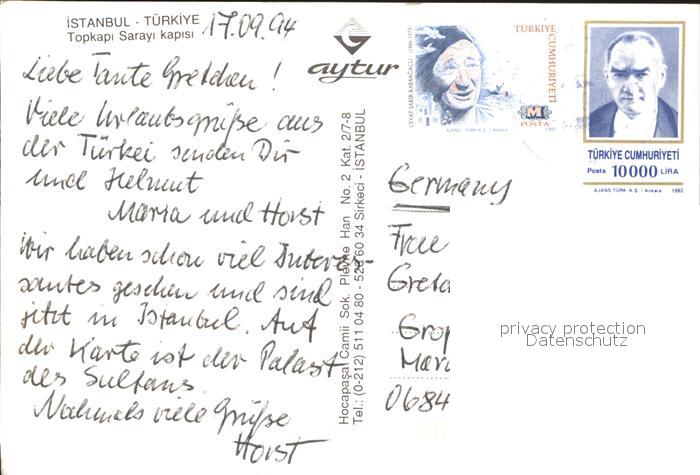 İSTANBUL - TÜRKİYE
Topkapı Sarayı kapısı
17.09.94
Liebe Tante Gretchen!
Viele Urlaubsgrüße aus
der Türkei senden Dir
und Helmut
Maria und Horst
Wir haben schon viel Interes-
santes gesehen und sind
jetzt in Istanbul. Auf
der Karte ist der Palast
des Sultans.
Nochmals viele Grüße
Horst
aytur
Hocapaşa Camii Sok. Plevne Han No. 2 Kat. 2/7-8
Tel.: (0-212) 511 04 80 - 526 60 34 Sirkeci - İSTANBUL
CEVAT ŞAKİR KABAAĞAÇLI
TÜRKİYE
CUMHURİYETİ
M
POSTA
AJANS TÜRK A.Ş. / Ankara
TÜRKİYE CUMHURİYETİ
Posta 10000 LİRA
AJANS TÜRK A.Ş. / Ankara 1992
Germany
Frau
Greta
Grop
Mar
0684
privacy protection
Datenschutz